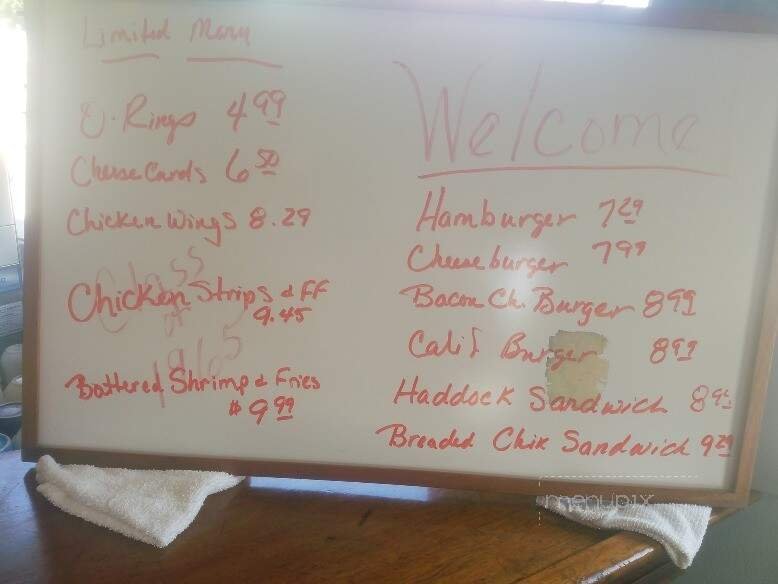 Limited Menu
O. Rings 4 99
Cheese Curds 6 50
Chicken Wings 8.29
Chicken Strips & FF
9.45
Battered Shrimp & Fries
$ 9 99
Class
of
1965
Welcome
Hamburger 7 29
Cheeseburger 7 99
Bacon Ch. Burger 8 99
Calif Burger 8 99
Haddock Sandwich 8 95
Breaded Chix Sandwich 9 29
menupix